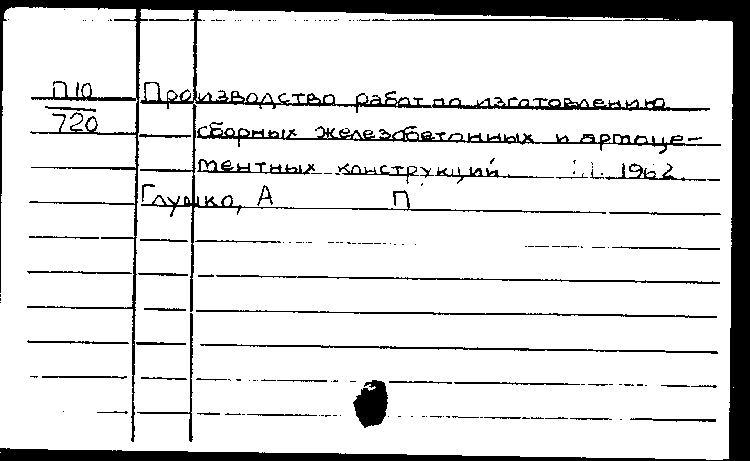 П10 Производство работ по изготовлению
720 сборных железобетонных и армоце-
ментных конструкций 1962.
Глушко, А П